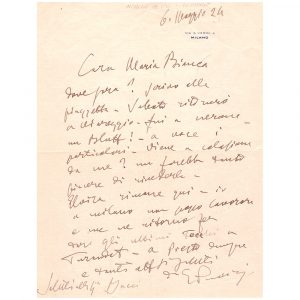 6. Maggio 24
MILANO
Cara Maria Bianca
dove sera? scrivo alla
piazzetta - Sabato ritornerò
a Viareggio - fui a Verona -
un bluff! - a voce i
particolari - Viene a colazione
da me? mi farebbe tanto
piacere di rivederla -
Elvira rimane qui - io
a Milano non posso lavorare
e me ne ritorno per
dare gli ultimi tocchi a
Turandot - a presto dunque
e tanti aff saluti